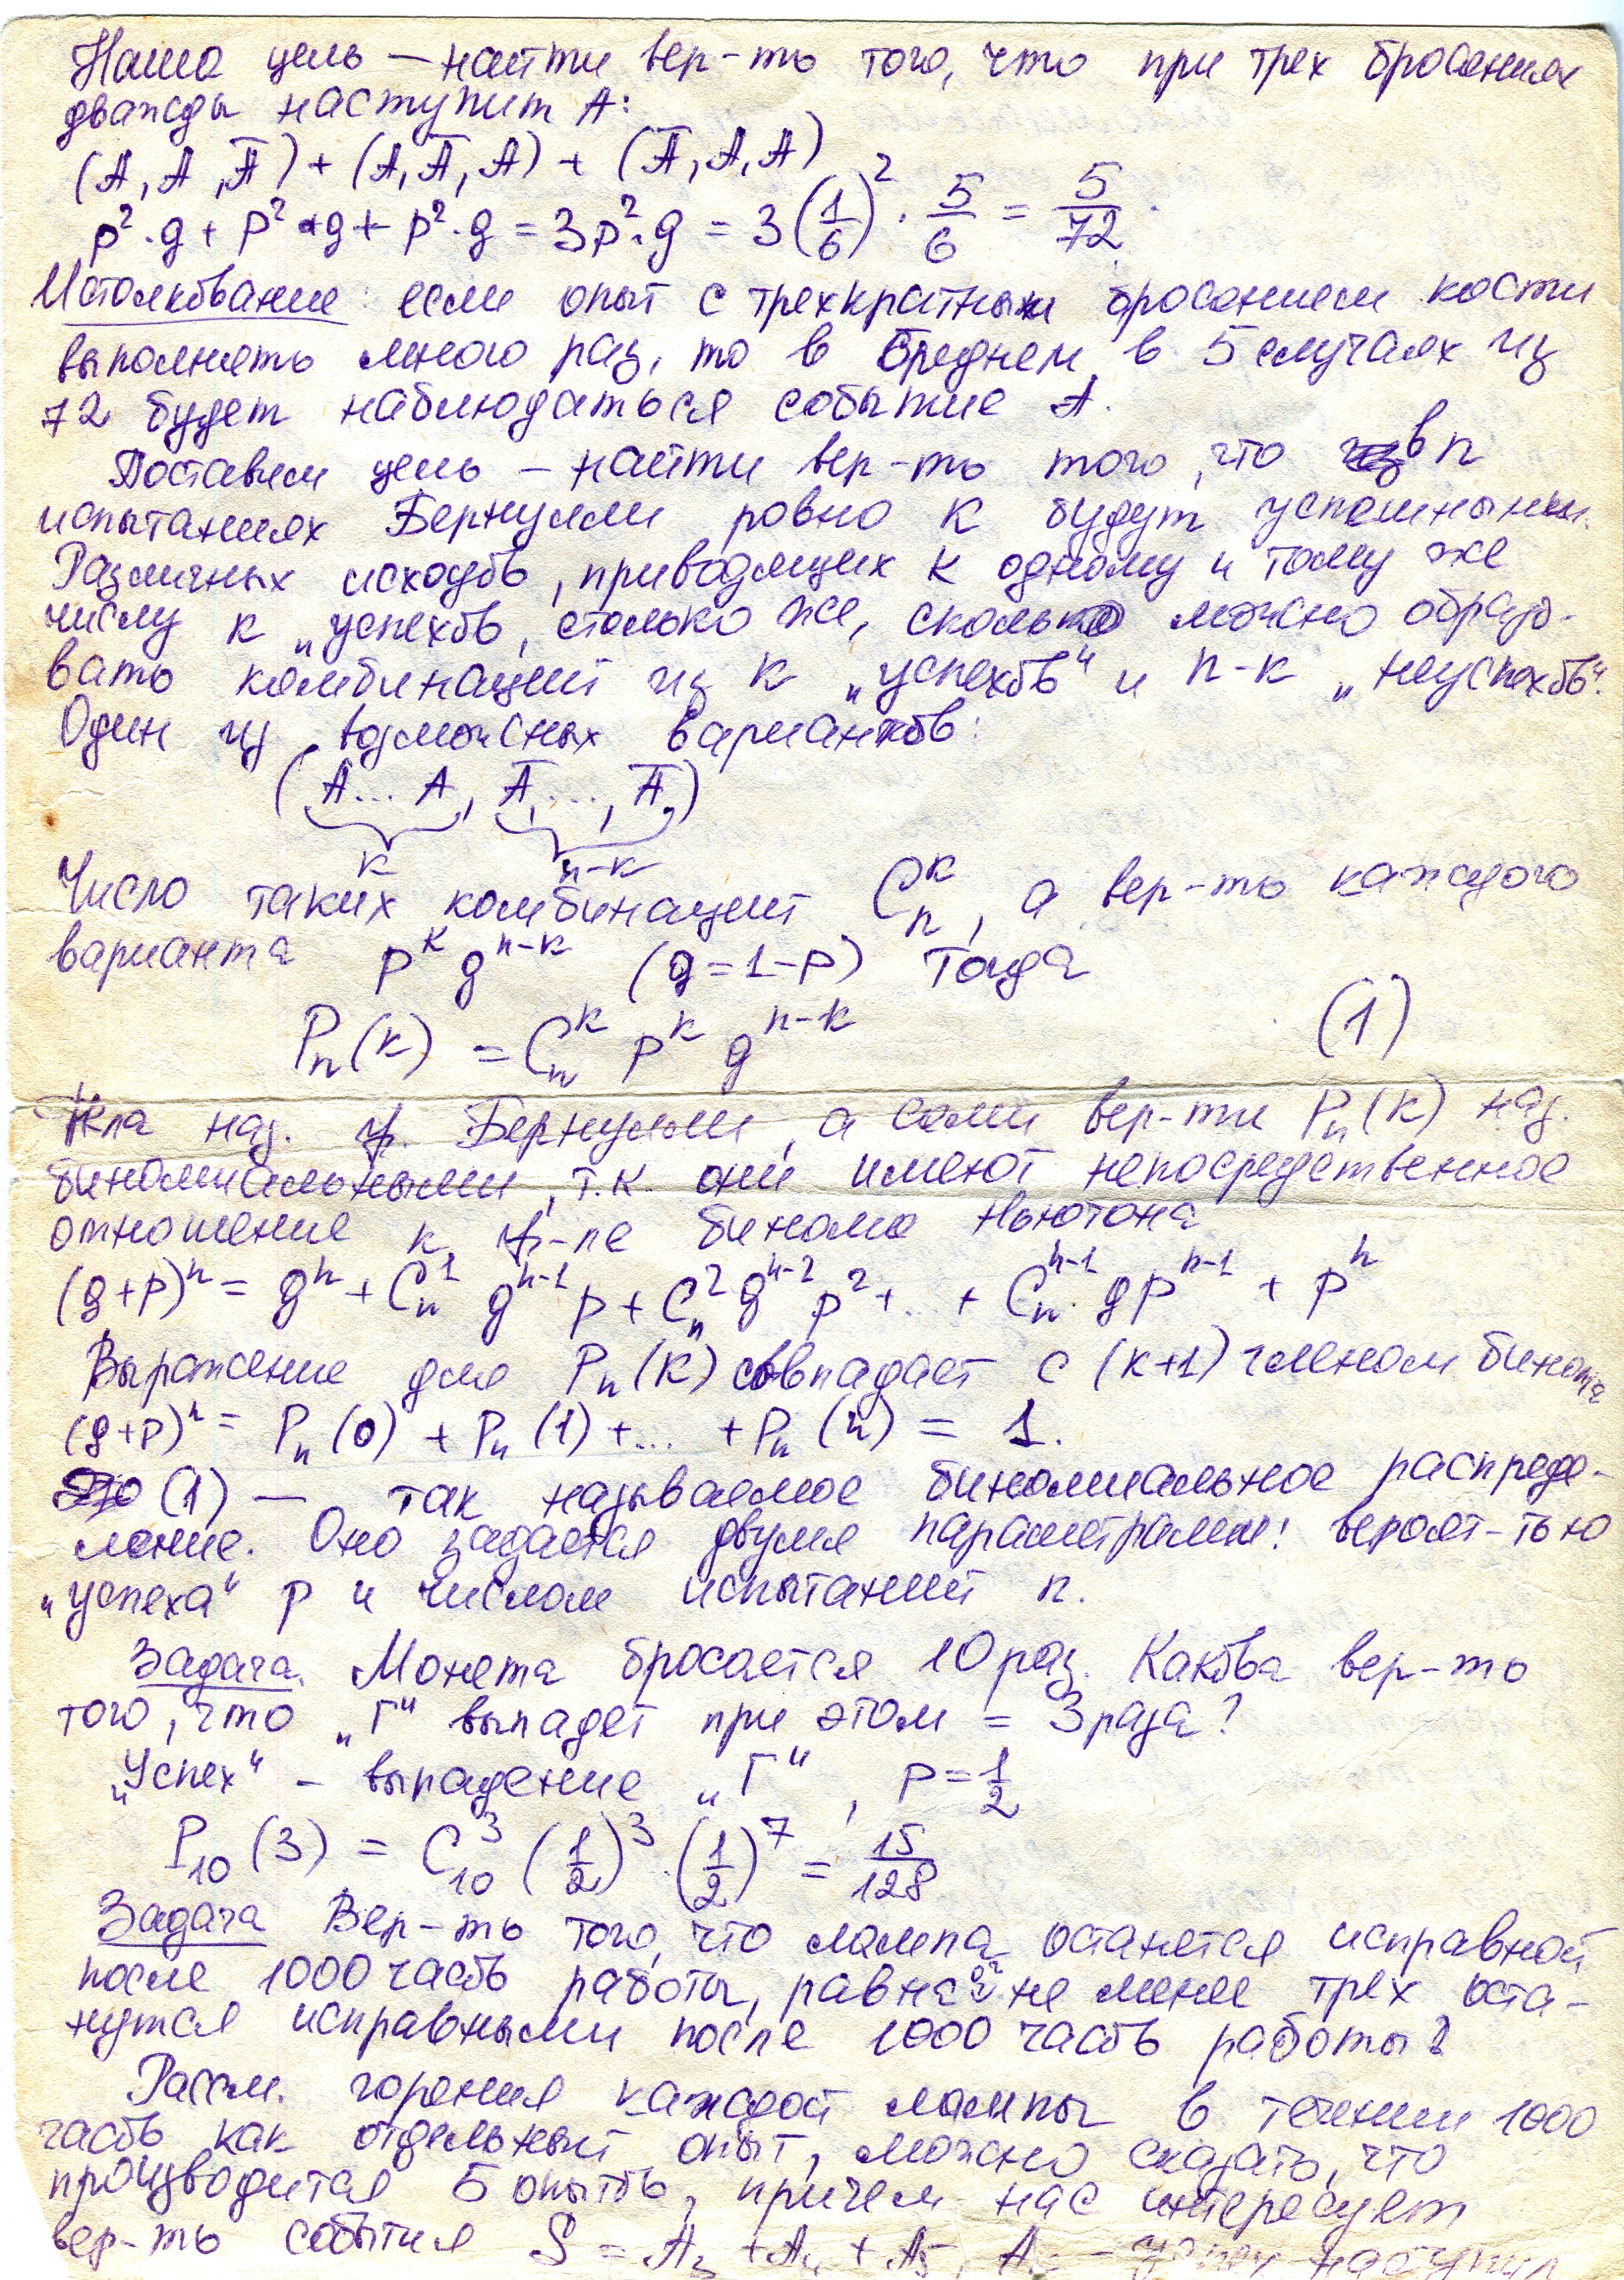 Наша цель — найти вер-ть того, что при трех бросаниях
дважды наступит A:
(A, A, A̅) + (A, A̅, A) + (A̅, A, A)
p²·q + p²·q + p²·q = 3p²·q = 3(1/6)²·5/6 = 5/72.
Истолкование: если опыт с трехкратным бросанием кости
выполнять много раз, то в среднем в 5 случаях из
72 будет наблюдаться событие A.
Поставим цель – найти вер-ть того, что в n
испытаниях Бернулли ровно k будут успешными.
Различных исходов, приводящих к одному и тому же
числу k „успехов, столько же, сколько можно образо-
вать комбинаций из k „успехов“ и n-k „неуспехов“.
Один из возможных вариантов:
(A... A, A̅, ..., A̅)
k n-k
Число таких комбинаций Cₙᵏ, а вер-ть каждого
варианта pᵏ qⁿ⁻ᵏ (q=1-p) Тогда
Pₙ(k) = Cₙᵏ pᵏ qⁿ⁻ᵏ (1)
наз. ф. Бернулли, а сами вер-ти Pₙ(k) наз.
биномиальными, т.к. они имеют непосредственное
отношение к ф-ле бинома Ньютона
(q+p)ⁿ = qⁿ + Cₙ¹ qⁿ⁻¹p + Cₙ² qⁿ⁻² p² + ... + Cₙⁿ⁻¹ qpⁿ⁻¹ + pⁿ
Выражение для Pₙ(k) совпадает с (k+1) членом бинома
(q+p)ⁿ = Pₙ(0) + Pₙ(1) + ... + Pₙ(n) = 1.
(1) — так называемое биномиальное распреде-
ление. Оно задается двумя параметрами: вероят-тью
„успеха“ p и числом испытаний n.
Задача. Монета бросается 10 раз. Какова вер-ть
того, что „Г“ выпадет при этом = 3 раза?
„Успех“ – выпадение „Г“, p = 1/2
P₁₀(3) = C₁₀³ (1/2)³·(1/2)⁷ = 15/128
Задача Вер-ть того, что лампа останется исправной
после 1000 часов работы, равна не менее трех оста-
нутся исправными после 1000 часов работы?
Рассм. горения каждой лампы в течении 1000
часов как отдельный опыт, можно сказать, что
производится 5 опытов, причем нас интересует
вер-ть события S = A₃ + A₄ + A₅, A – успех наступил